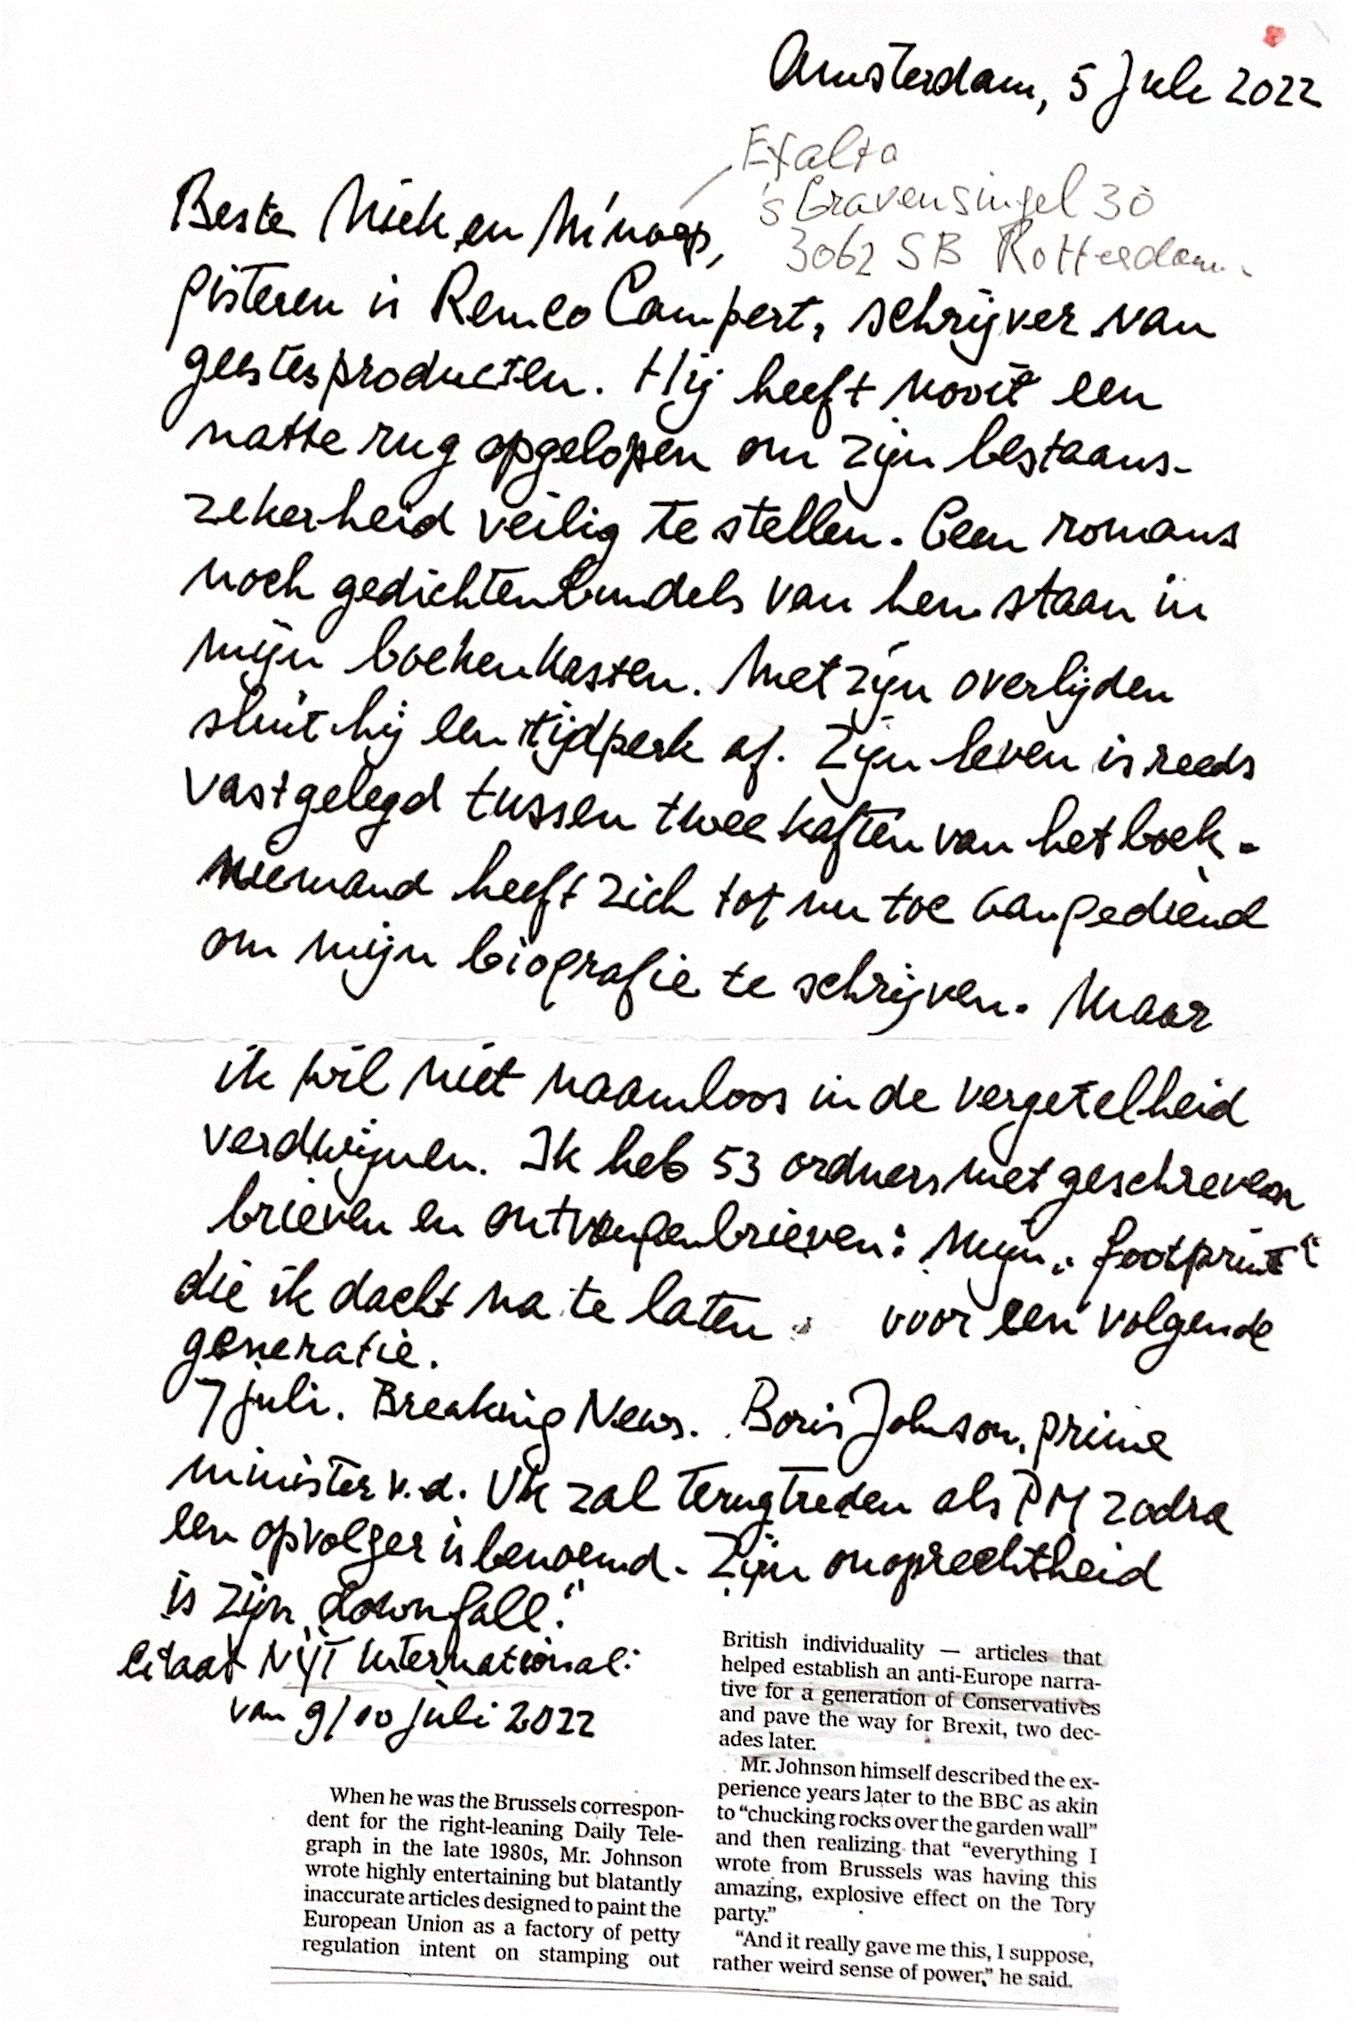 Amsterdam, 5 Juli 2022
Exalto
's Gravensingel 30
3062 SB Rotterdam.
Beste Niek en
gisteren is Remco Campert, schrijver van
geestesproducten. Hij heeft nooit een
natte rug opgelopen om zijn bestaans-
zekerheid veilig te stellen. Geen romans
noch gedichtenbundels van hem staan in
mijn boekenkasten. Met zijn overlijden
sluit hij een tijdperk af. Zijn leven is reeds
vastgelegd tussen twee kaften van het boek.
Niemand heeft zich tot nu toe aangediend
om mijn biografie te schrijven. Maar
ik wil niet naamloos in de vergetelheid
verdwijnen. Ik heb 53 ordners met geschreven
brieven en ontvangen brieven: Mijn „footprint“
die ik dacht na te laten voor een volgende
generatie.
7 juli. Breaking News. Boris Johnson, prime
minister v.d. UK zal terugtreden als PM zodra
een opvolger is benoemd. Zijn onoprechtheid
is zijn „downfall.“
Citaat NYT International:
van 9/10 juli 2022
When he was the Brussels correspon-
dent for the right-leaning Daily Tele-
graph in the late 1980s, Mr. Johnson
wrote highly entertaining but blatantly
inaccurate articles designed to paint the
European Union as a factory of petty
regulation intent on stamping out
British individuality — articles that
helped establish an anti-Europe narra-
tive for a generation of Conservatives
and pave the way for Brexit, two dec-
ades later.
Mr. Johnson himself described the ex-
perience years later to the BBC as akin
to “chucking rocks over the garden wall”
and then realizing that “everything I
wrote from Brussels was having this
amazing, explosive effect on the Tory
party.”
“And it really gave me this, I suppose,
rather weird sense of power,” he said.